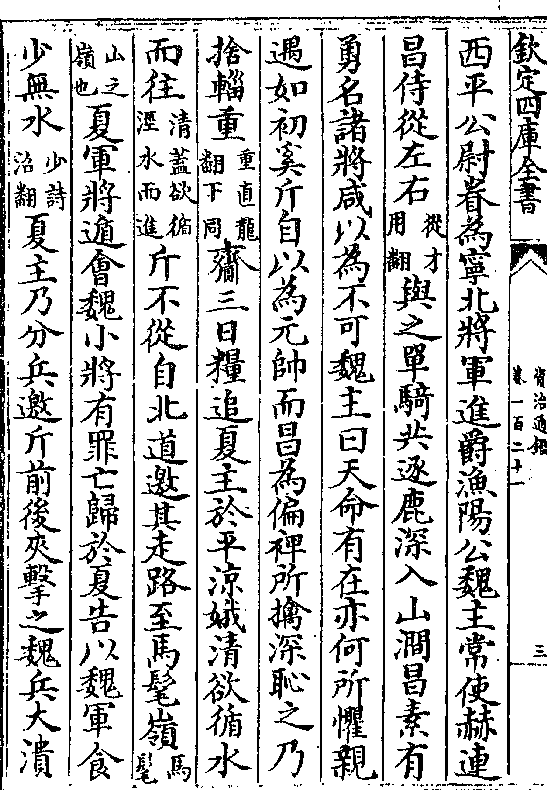 欽定四庫全書
資治通鑑
卷一百二十一
三
西平公尉眷為寧北將軍進爵漁陽公魏主常使赫連
昌侍從左右從才用翻與之單騎共逐鹿深入山澗昌素有
勇名諸將咸以為不可魏主曰天命有在亦何所懼親
遇如初奚斤自以為元帥而昌為偏裨所擒深恥之乃
捨輜重重直龍翻下同齎三日糧追夏主於平涼娥清欲循水
而往清蓋欲循涇水而進斤不從自北道邀其走路至馬髦嶺馬髦
山之嶺也夏軍將遁會魏小將有罪亡歸於夏告以魏軍食
少無水少詩沼翻夏主乃分兵邀斤前後夾擊之魏兵大潰